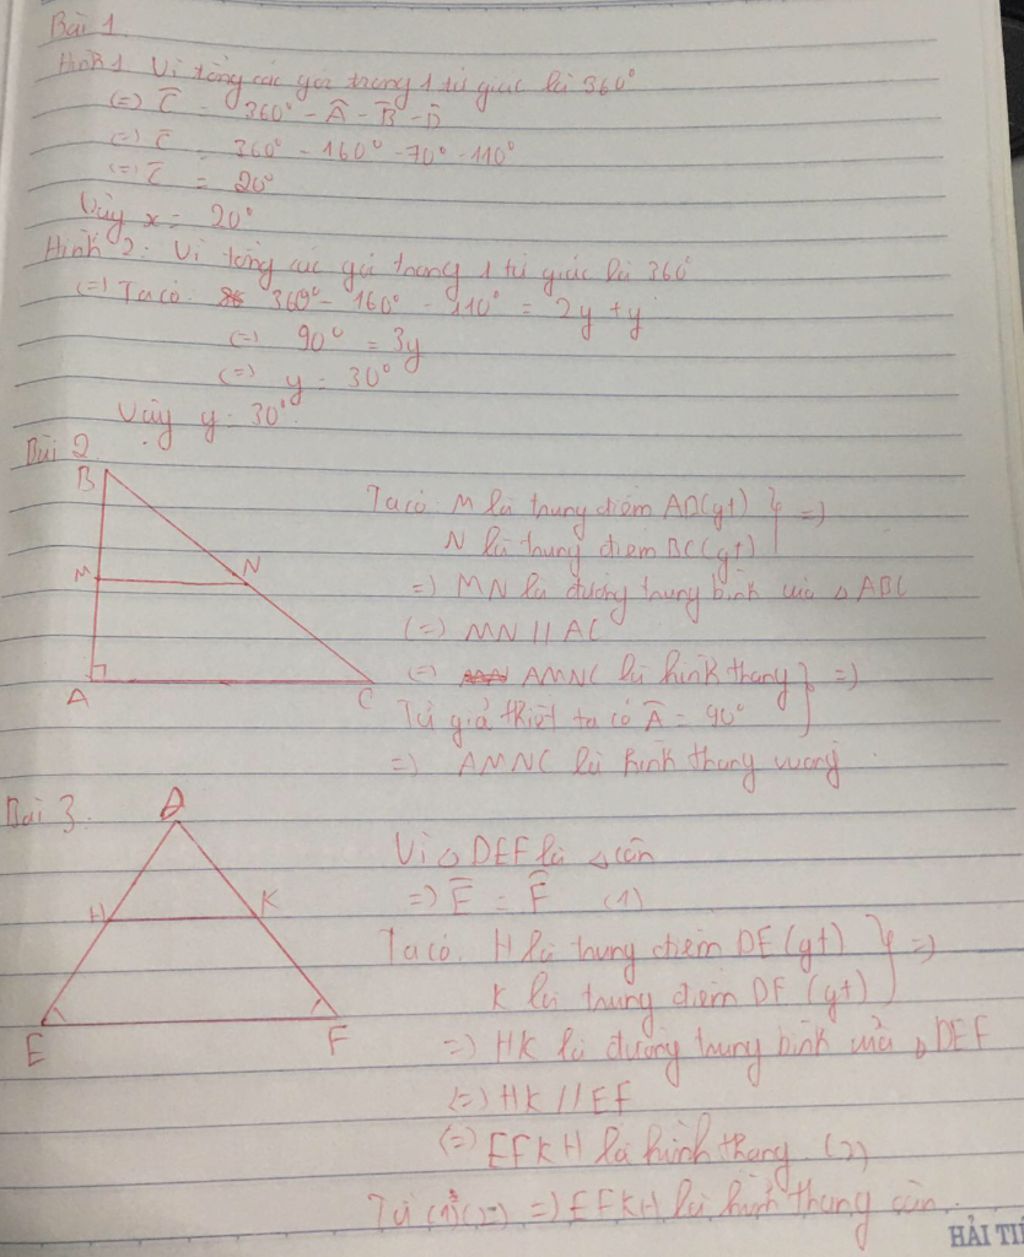 Bài 1.
Hình 1. Vì tổng các góc trong 1 tứ giác là 360°
(=) Ĉ = 360° - Â - B̂ - D̂
(=) Ĉ = 360° - 160° - 70° - 110°
(=) Ĉ = 20°
Vậy x = 20°
Hình 2: Vì tổng các góc trong 1 tứ giác là 360°
(=) Ta có: 360° - 160° - 110° = 2y + y
(=) 90° = 3y
(=) y = 30°
Vậy y = 30°.
Bài 2
B
M
N
A
C
Ta có: M là trung điểm AB (gt) } =)
N là trung điểm BC (gt)
=) MN là đường trung bình của △ ABC
(=) MN // AC
(=) AMNC là hình thang } =)
Từ giả thiết ta có Â = 90°
=) AMNC là hình thang vuông
Bài 3.
D
H
K
E
F
Vì △ DEF là △ cân
=) Ê = F̂ (1)
Ta có: H là trung điểm DE (gt) } =)
K là trung điểm DF (gt)
=) HK là đường trung bình của △ DEF
(=) HK // EF
(=) EFKH là hình thang (2)
Từ (1)(2) =) EFKH là hình thang cân.
HẢI TI